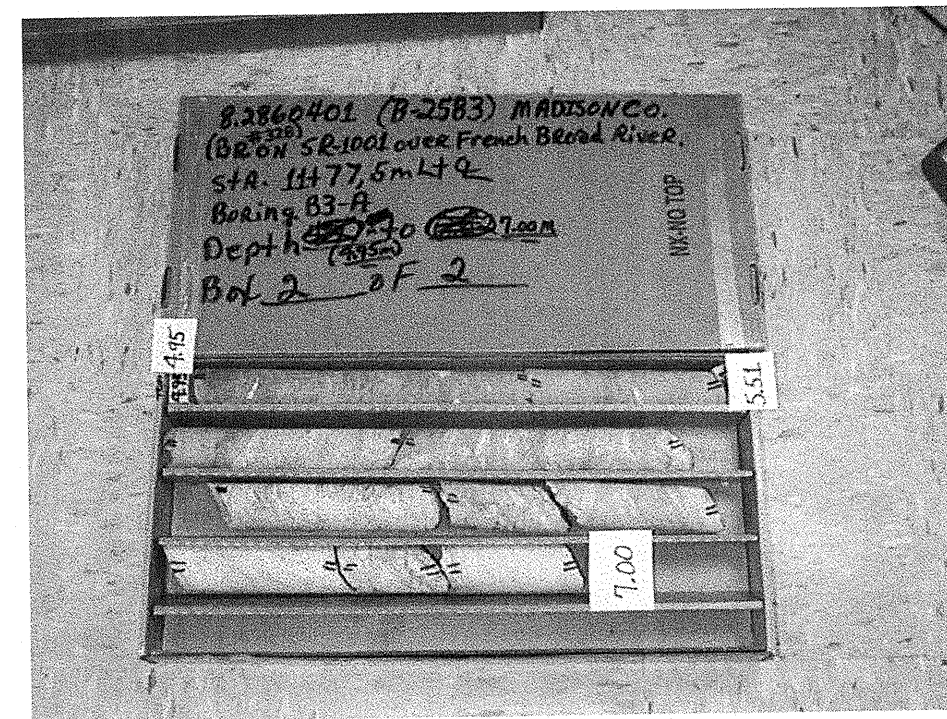 8.2860401 (B-2583) MADISON CO.
#328
(BR ON SR-1001 over French Broad River.
StA. 11+77, 5m Lt ℄
Boring B3-A
Depth to 7.00m
(4.95m)
Box 2 of 2
NX-NO TOP
4.95
4.95
5.51
7.00